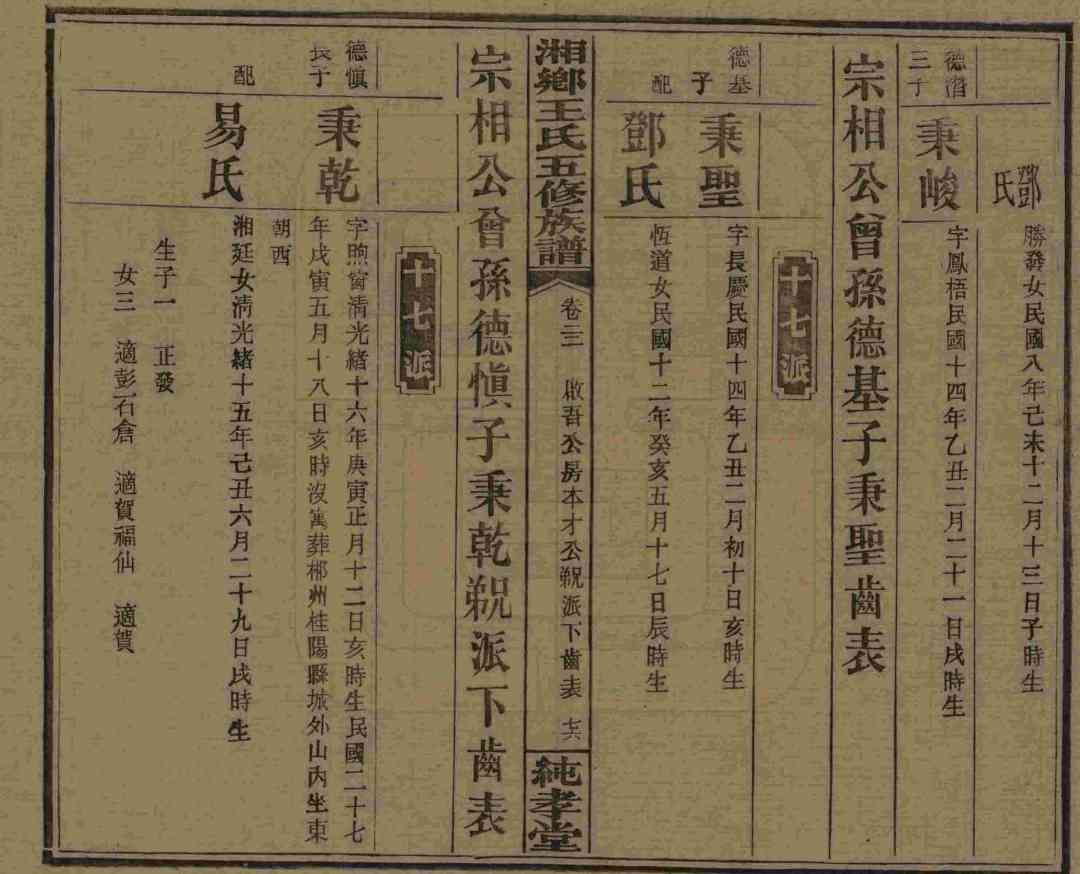 鄧氏
勝發女民國八年己未十二月十三日子時生
德濳
三子
秉峻
字鳳梧民國十四年乙丑二月二十一日戌時生
宗相公曾孫德基子秉聖齒表
十七派
德基
子
秉聖
字長慶民國十四年乙丑二月初十日亥時生
配
鄧氏
恆道女民國十二年癸亥五月十七日辰時生
湘鄉王氏五修族譜
卷三三 啟吾公房本才公
派下齒表 七六
純孝堂
宗相公曾孫德愼子秉乾
派下齒表
十七派
德愼
長子
秉乾
字煦窗清光緒十六年庚寅正月十二日亥時生民國二十七
年戊寅五月十八日亥時沒寓葬郴州桂陽縣城外山丙坐東
朝西
配
易氏
湘廷女清光緒十五年己丑六月二十九日戌時生
生子一 正發
女三 適彭石倉 適賀福仙 適賀